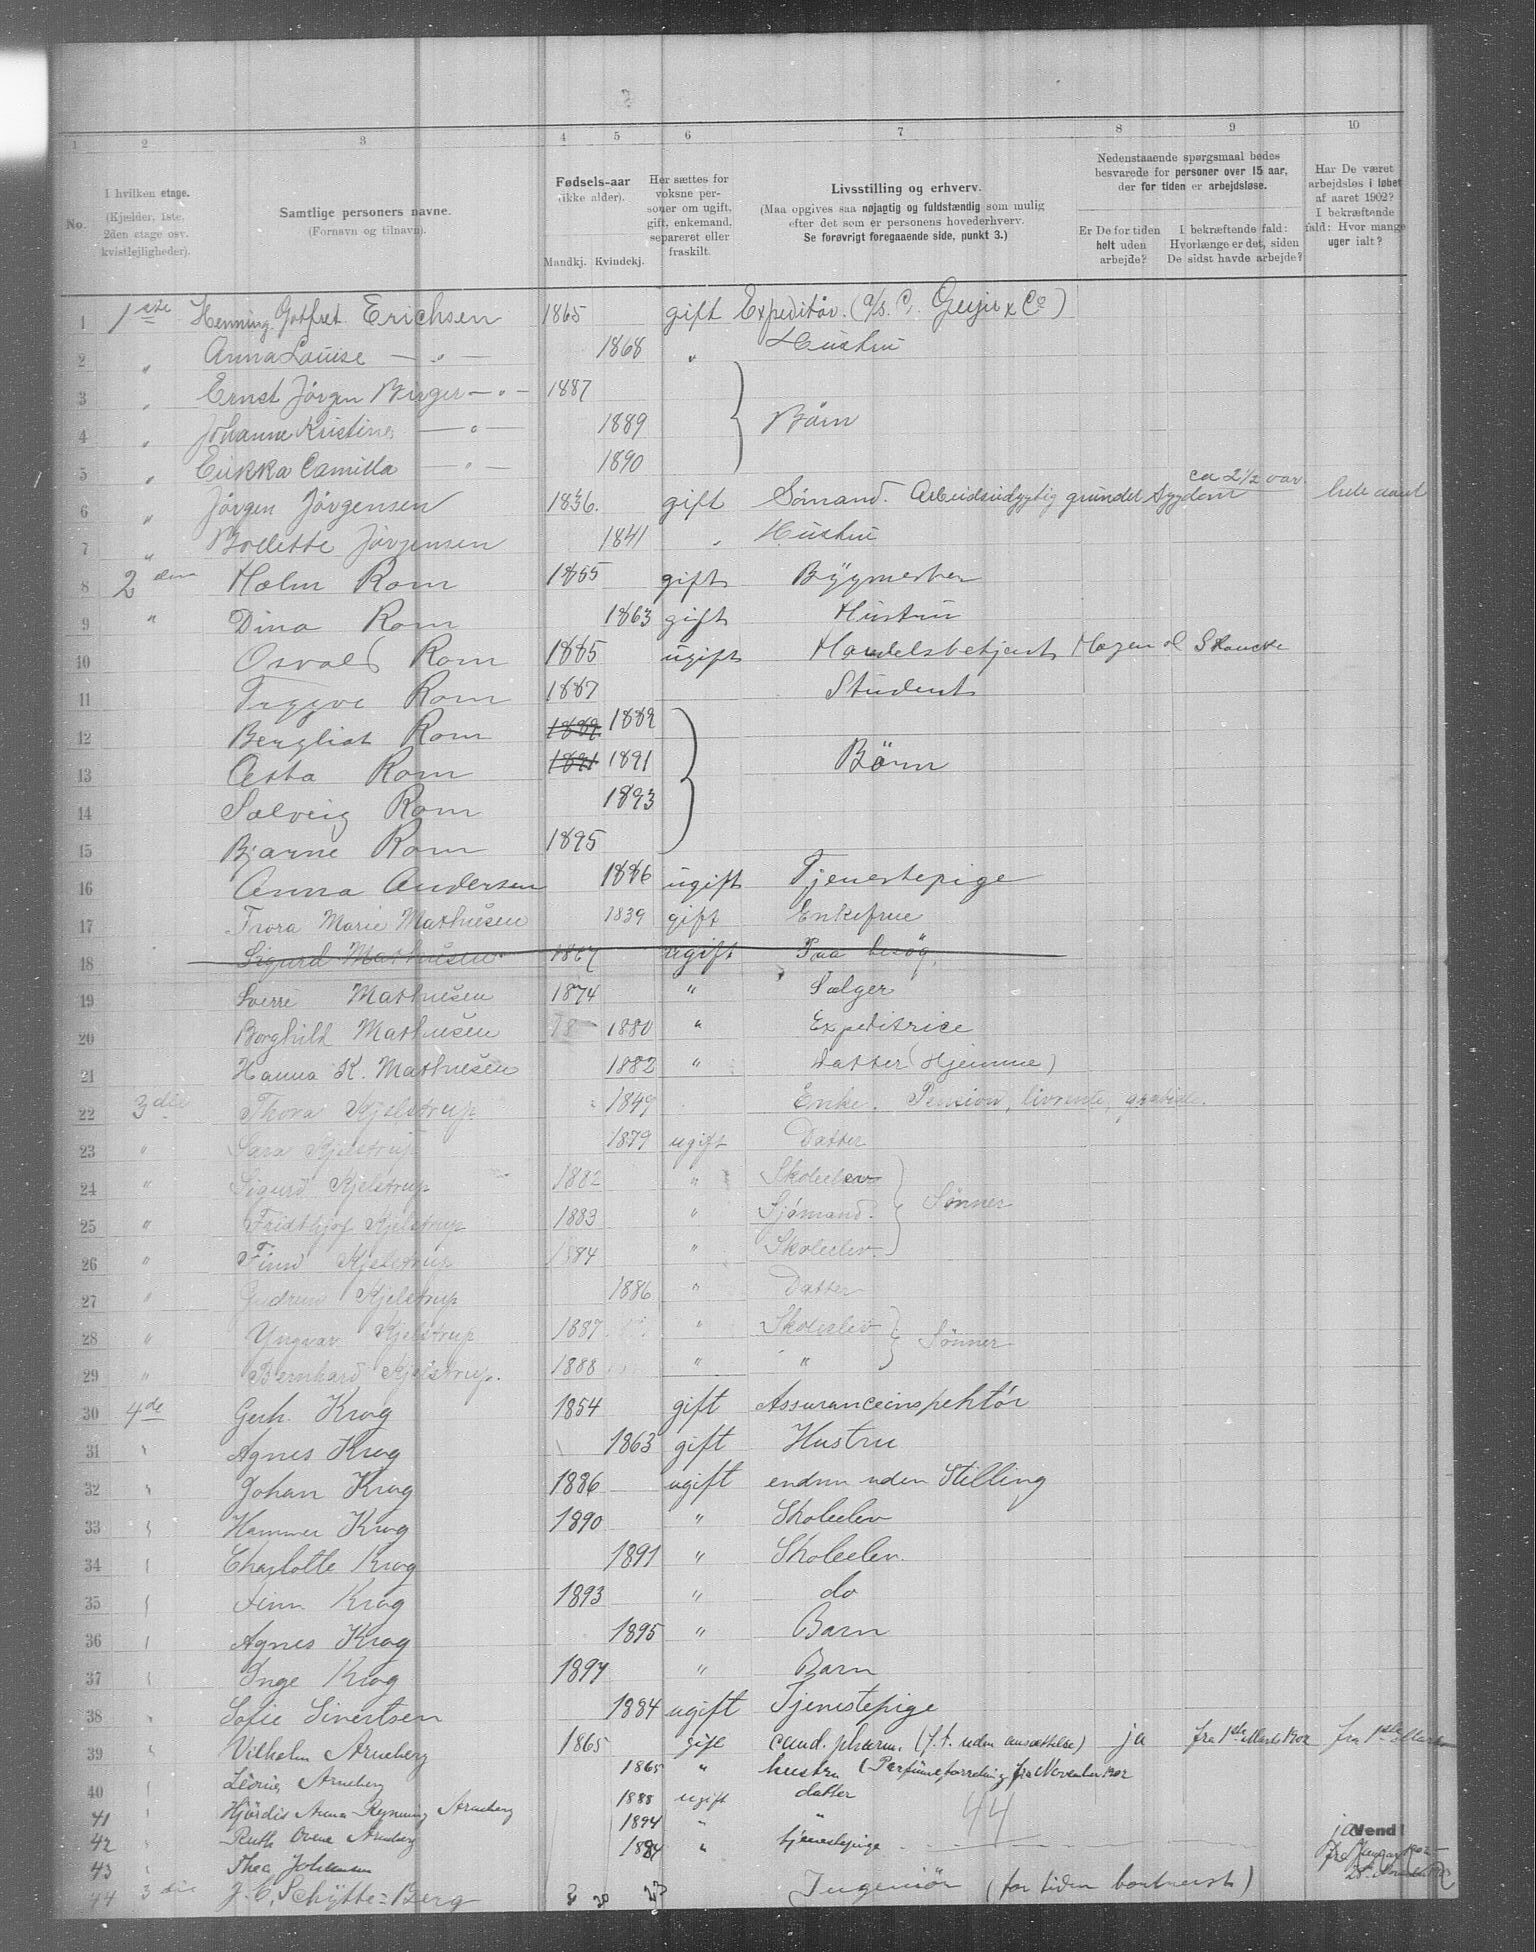 1 2 3 4 5 6 7 8 9 10
No.
I hvilken etage. (Kjælder, 1ste, 2den etage osv. kvistlejligheder).
Samtlige personers navne. (Fornavn og tilnavn).
Fødsels-aar (ikke alder). Mandkj. Kvindekj.
Her sættes for voksne personer om ugift, gift, enkemand, separeret eller fraskilt.
Livsstilling og erhverv. (Maa opgives saa nøjagtig og fuldstændig som mulig efter det som er personens hovederhverv. Se forøvrigt foregaaende side, punkt 3.)
Nedenstaaende spørgsmaal bedes besvarede for personer over 15 aar, der for tiden er arbejdsløse.
Er De for tiden helt uden arbejde?
I bekræftende fald: Hvorlænge er det, siden De sidst havde arbejde?
Har De været arbejdsløs i løbet af aaret 1902? I bekræftende fald: Hvor mange uger ialt?
1 1ste Henning Gotfret Erichsen 1865 gift Expeditør (a/s. C. Geijer & Co)
2 " Anna Louise — " — 1868 " Hustru
3 " Ernst Jørgen Birger — " — 1887
4 " Johanne Kristine — " — 1889 } Børn
5 " Erikka Camilla — " — 1890
6 " Jørgen Jørgensen 1836. gift Sömand. Arbeidsudygtig grundet Sygdom ca 2 1/2 aar hele aaret
7 " Bollette Jörgensen 1841 " Hustru
8 2den Holm Rom 1855 gift Bygmester
9 " Dina Rom 1863 gift Hustru
10 Osvald Rom 1885 ugift Handelsbetjent Hagen & Skancke
11 Trygve Rom 1887 Student
12 Bergliot Rom 1889 1889
13 Asta Rom 1891 1891 } Børn
14 Solveig Rom 1893
15 Bjarne Rom 1895
16 Anna Andersen 1886 ugift Tjenestepige
17 Thora Marie Mathiesen 1839 gift Enkefrue
18 Sigurd Mathiesen 1867 ugift Paa besøg.
19 Sverre Mathiesen 1874 " Sælger
20 Borghild Mathiesen 18 1880 " Expeditrice
21 Hanna K. Mathiesen 1882 " Datter (Hjemme)
22 3die Thora Kjelstrup 1849 Enke. Pension, livrente,
23 " Sara Kjelstrup 1879 ugift Datter
24 " Sigurd Kjelstrup 1882 " Skoleelev
25 " Fridthjof Kjelstrup 1883 " Sjömand. } Sønner
26 " Finn Kjelstrup 1884 " Skoleelev.
27 " Gudrun Kjelstrup 1886 " Datter
28 " Yngvar Kjelstrup 1887 " Skoleelev } Sønner
29 " Bernhard Kjelstrup. 1888 " "
30 4de Gerh. Krog 1854 gift Assuranceinspektör
31 " Agnes Krog 1863 gift Hustru
32 " Johan Krog 1886 ugift endnu uden Stilling
33 " Hammer Krog 1890 " Skoleelev
34 " Charlotte Krog 1891 " Skoleelev.
35 " Finn Krog 1893 " do
36 " Agnes Krog 1895 " Barn
37 " Inge Krog 1897 " Barn
38 " Sofie Sivertsen 1884 ugift Tjenestepige
39 " Vilhelm Arneberg 1865 gift cand. pharm. (f. t. uden ansættelse) ja fra 1ste Marts 1902 fra 1ste Marts
40 " Leonie Arneberg 1865 " hustru (Parfumeforretning fra November 1902
41 " Hjördis Anna Rynning Arneberg 1888 ugift datter 44
42 " Ruth Arneberg 1894 " "
43 " Thea Johansen 1884 " tjenestepige ja
Vend!
44 3die J. C. Schytte-Berg Ingeniör (for tiden bortreist)